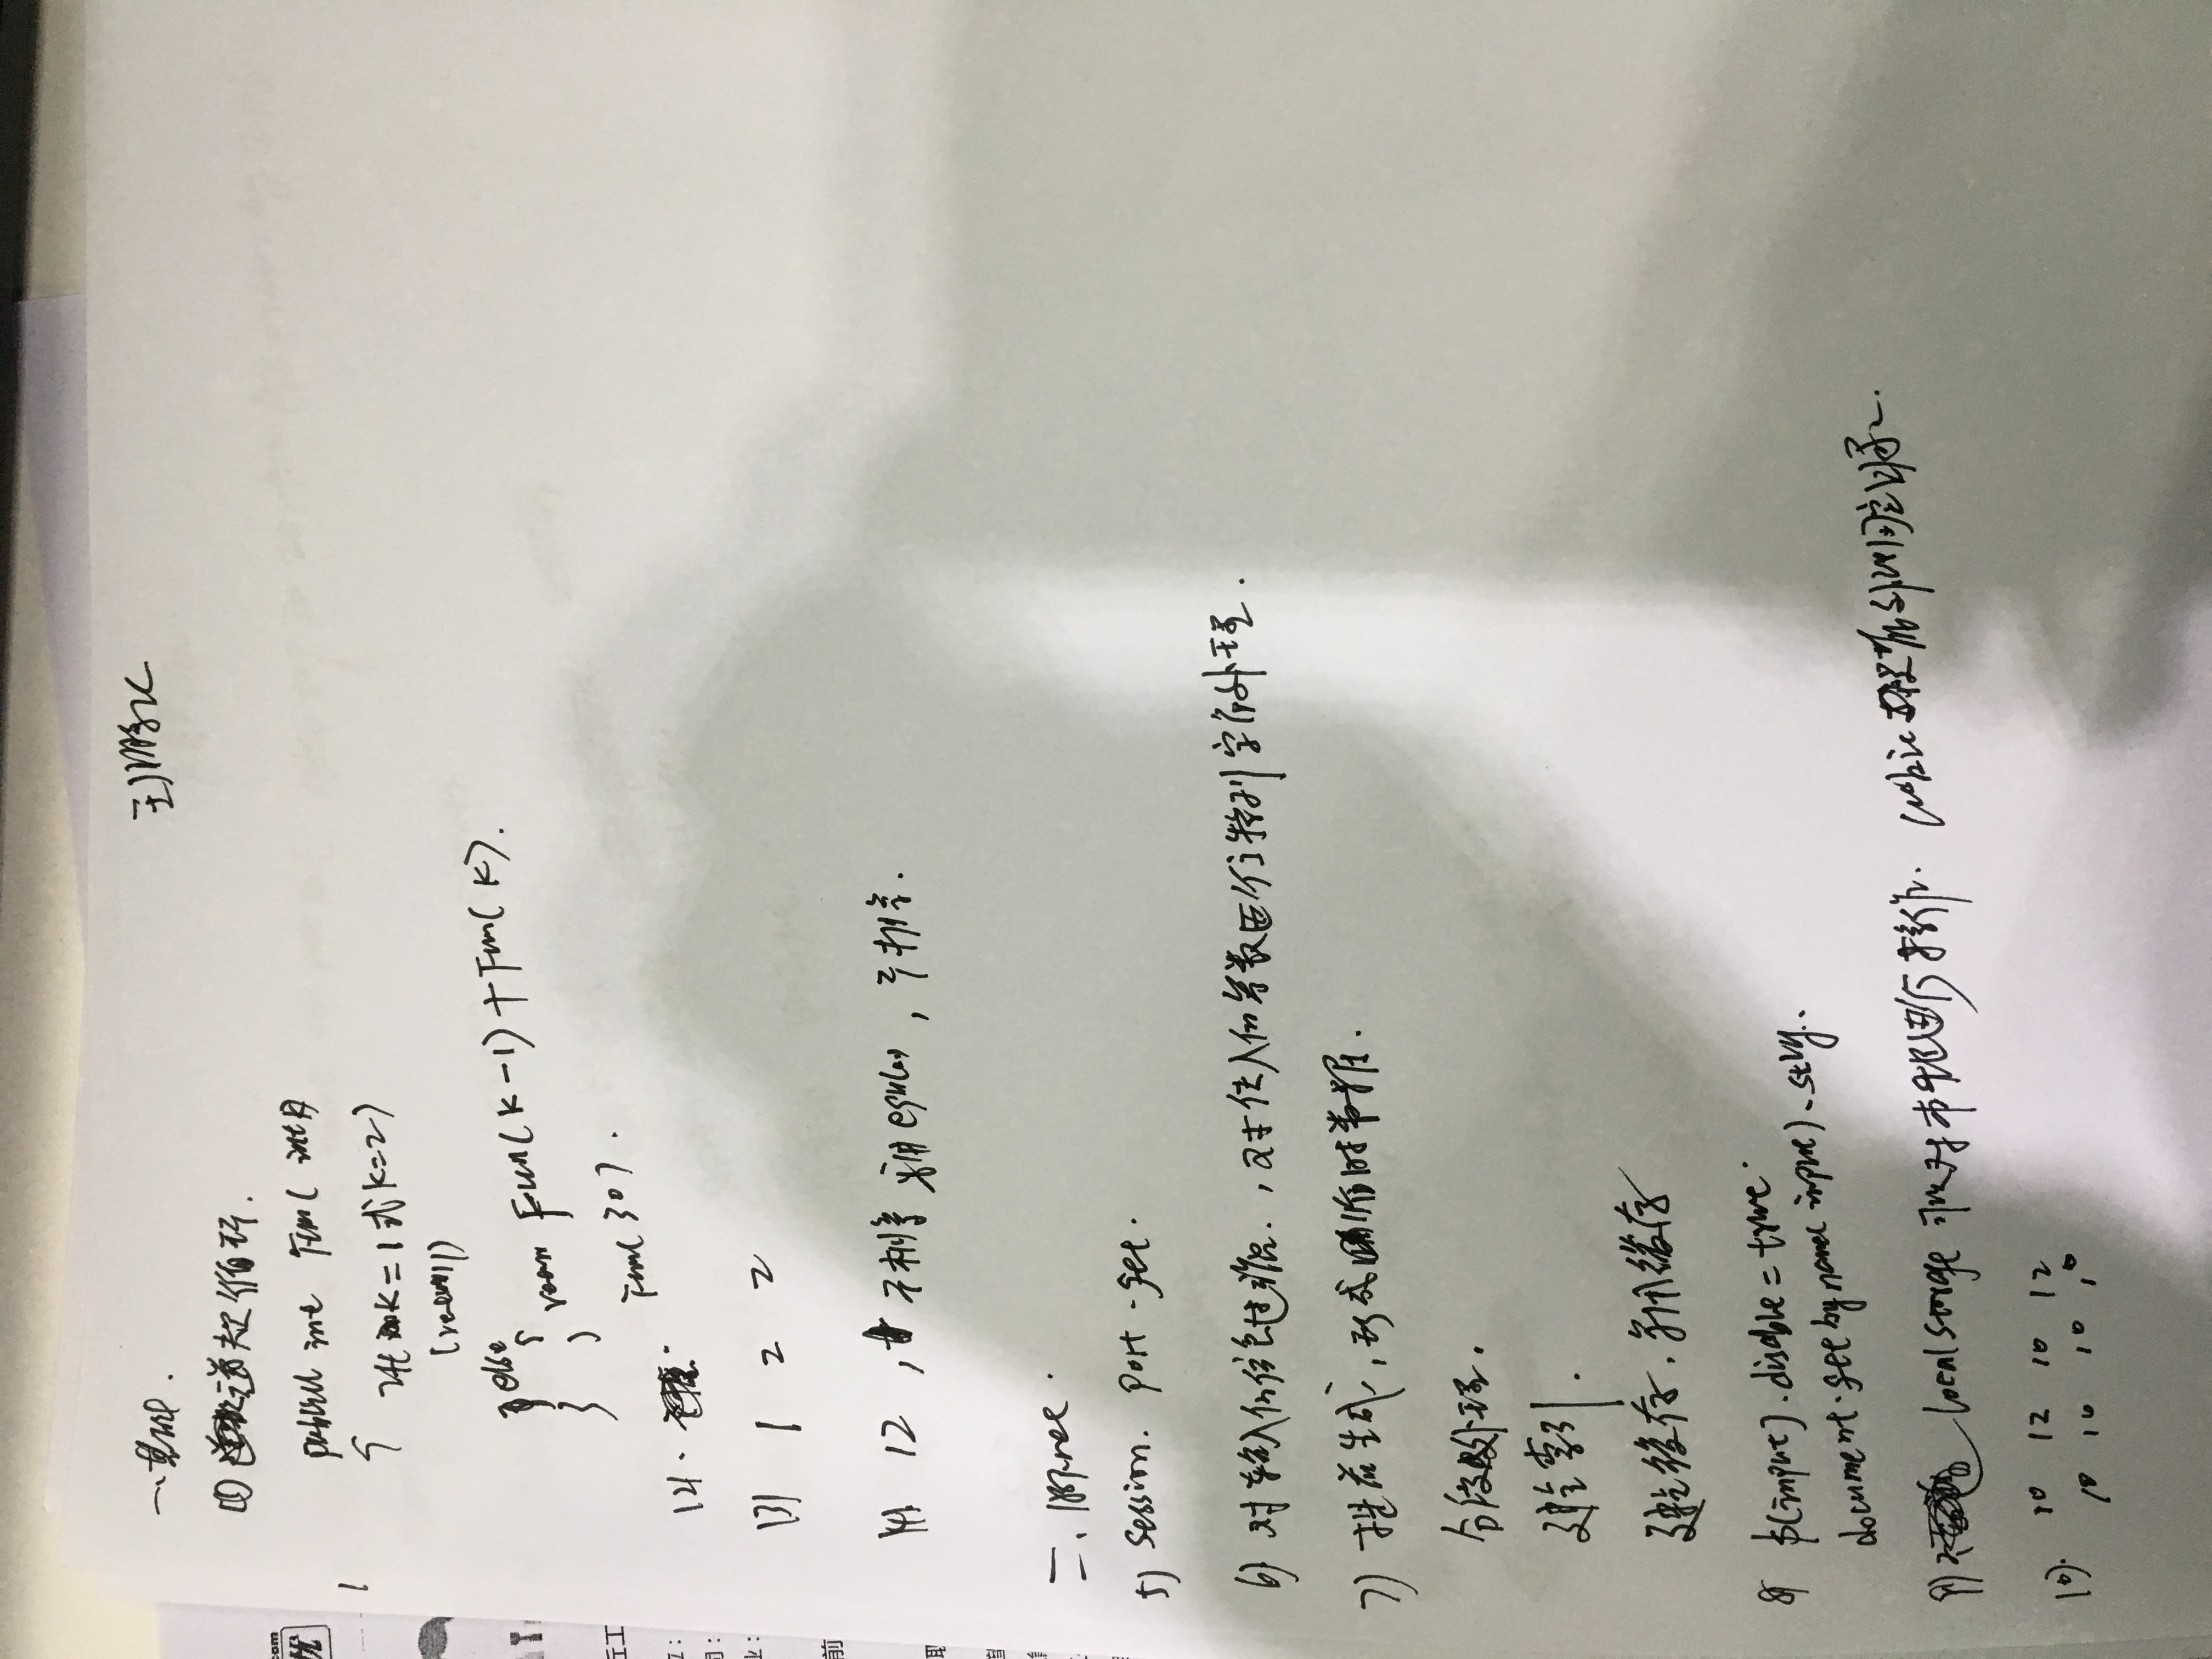 一、基础.
(1) 循环.
public int Fun( int k)
1
{
if( k=1 或 k=2)
(return 1)
} else
{ return Fun(k-1)+Fun(k).
} }
Fun(30).
(2).
(3) 1 2 2
(4) 12 , 子排序 利用 , 子排序.
二、.net.
5) session. port. get.
6) 对输入的信息过滤. , 对传入的参数进行特别字符处理.
7) 提前生成, 形成临时数据.
分段处理.
建立索引.
建立缓存. 利用缓存
8) $(input).disable=true.
document.getbyname(input).sty..
9) localstorge 可以对本地进行操作.
10). 10 12 10 12
10 10 10 10
com
优
丘工
位:
司:
业:
前
取
望